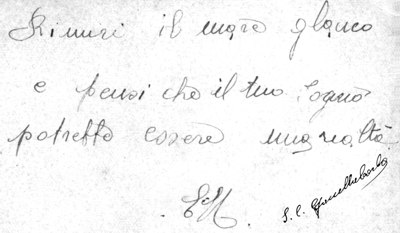 Rimiri il mare glauco
e pensi che il tuo sogno
potrebbe essere una realtà
EM.
S. C.